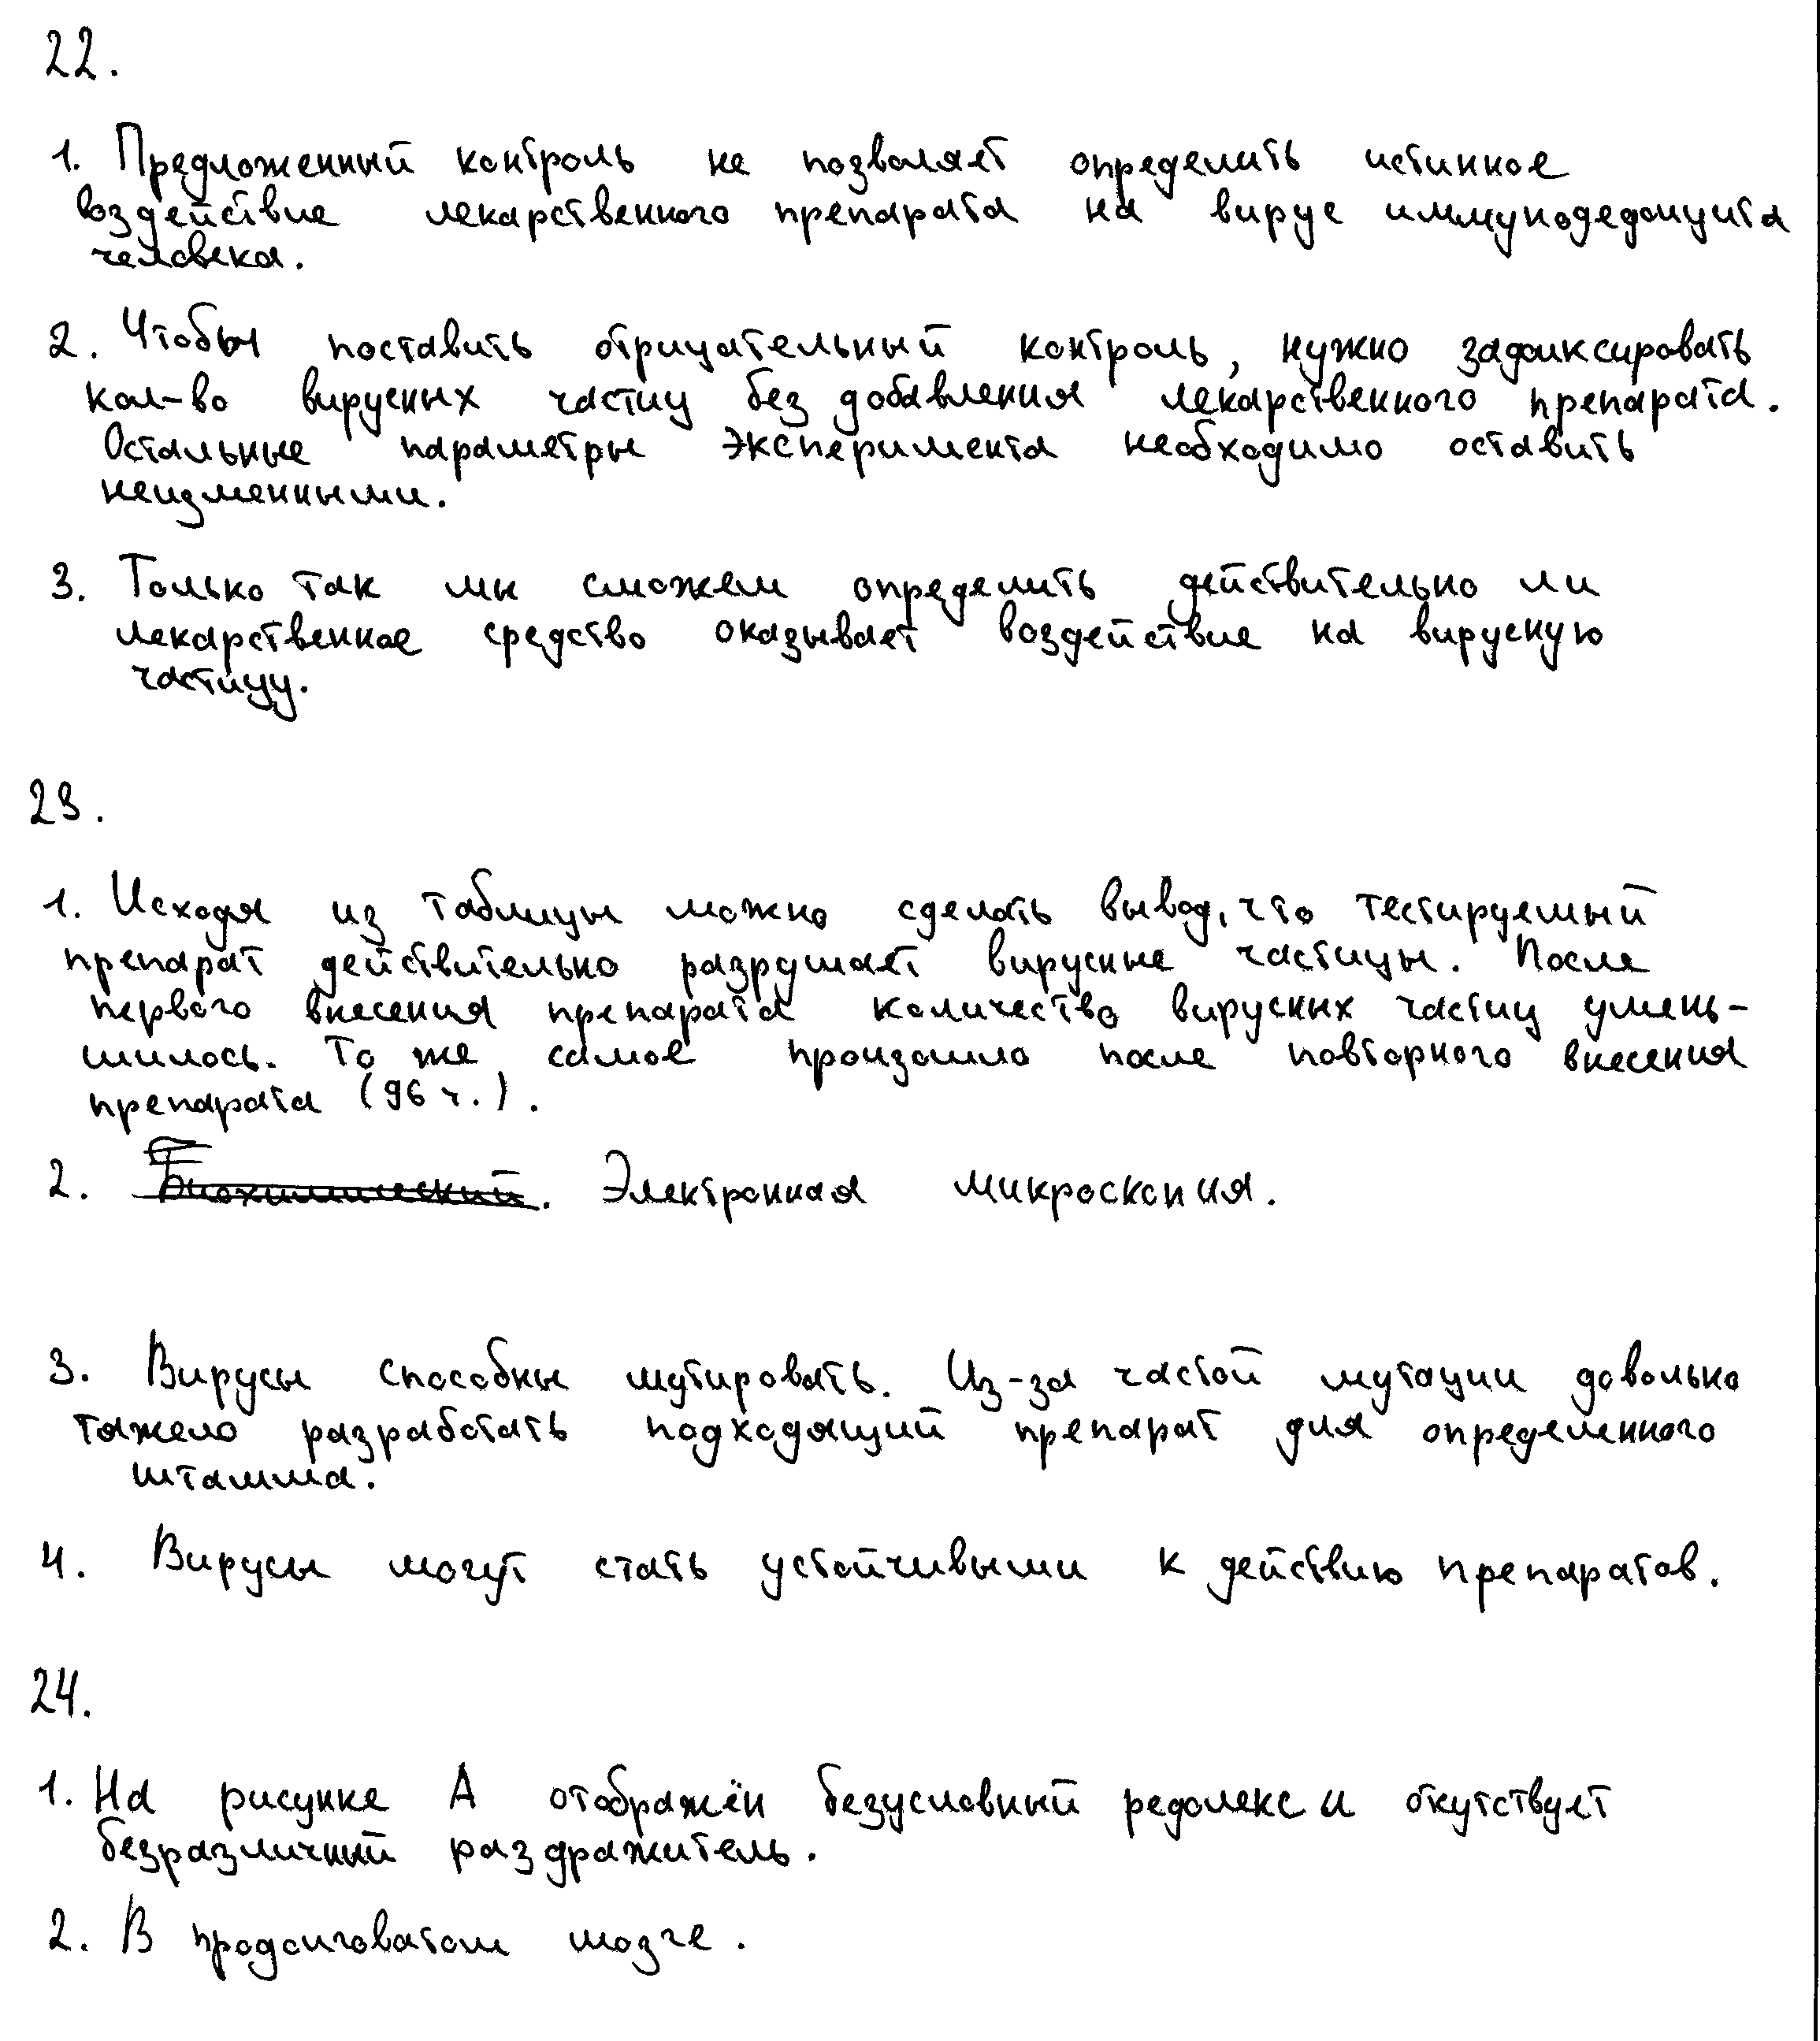 22.
1. Предложенный контроль не позволяет определить истинное
воздействие лекарственного препарата на вирус иммунодефицита
человека.
2. Чтобы поставить отрицательный контроль, нужно зафиксировать
кол-во вирусных частиц без добавления лекарственного препарата.
Остальные параметры эксперимента необходимо оставить
неизменными.
3. Только так мы сможем определить действительно ли
лекарственное средство оказывает воздействие на вирусную
частицу.
23.
1. Исходя из таблицы можно сделать вывод, что тестируемый
препарат действительно разрушает вирусные частицы. После
первого внесения препарата количество вирусных частиц умень-
шилось. То же самое произошло после повторного внесения
препарата (96 ч.).
2. Биохимический. Электронная микроскопия.
3. Вирусы способны мутировать. Из-за частой мутации довольно
тяжело разработать подходящий препарат для определенного
штамма.
4. Вирусы могут стать устойчивыми к действию препаратов.
24.
1. На рисунке А отображён безусловный рефлекс и отсутствует
безразличный раздражитель.
2. В продолговатом мозге.